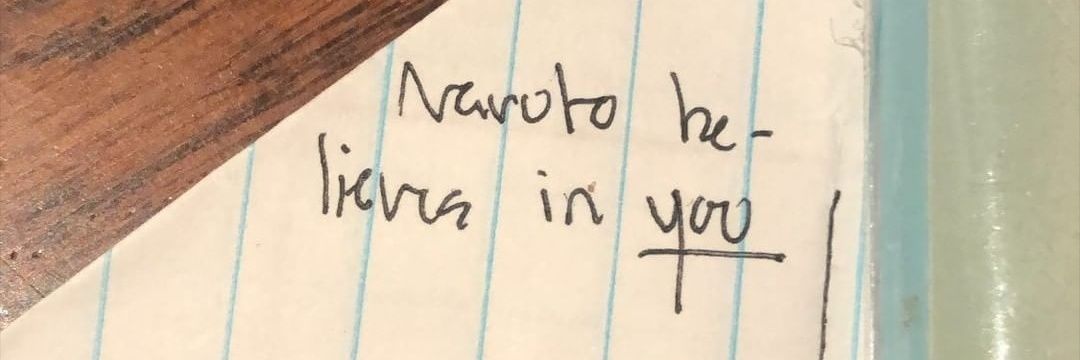 Naruto be-
lieves in you